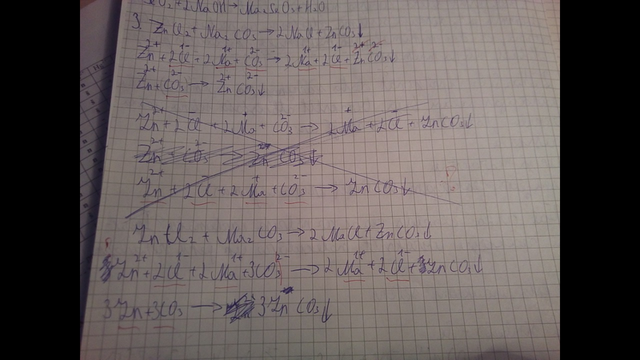 2NaOH → Na2SiO3 + H2O
3. ZnCl2 + Na2CO3 → 2NaCl + ZnCO3↓
Zn²⁺ + 2Cl¹⁻ + 2Na¹⁺ + CO3²⁻ → 2Na¹⁺ + 2Cl¹⁻ + Zn²⁺CO3²⁻↓
Zn²⁺ + CO3²⁻ → Zn²⁺CO3²⁻↓
Zn²⁺ + 2Cl⁻ + 2Na⁺ + CO3²⁻ → 2Na⁺ + 2Cl⁻ + ZnCO3↓
Zn²⁺ CO3²⁻ → Zn CO3↓
Zn²⁺ + 2Cl⁻ + 2Na⁺ + CO3²⁻ → ZnCO3↓
ZnCl2 + Na2CO3 → 2NaCl + ZnCO3↓
3Zn²⁺ + 2Cl¹⁻ + 2Na¹⁺ + 3CO3²⁻ → 2Na¹⁺ + 2Cl¹⁻ + 3ZnCO3↓
3Zn + 3CO3 → 3ZnCO3↓